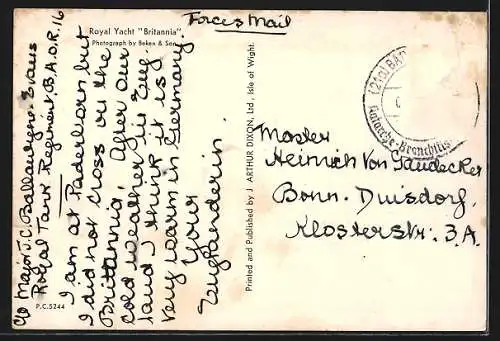 Royal Yacht "Britannia"
Photograph by Beken & Son
Forces Mail
c/o Major J.C. Ballantyne-Evans
Royal Tank Regiment, B.A.O.R. 16
I am at Paderborn but
I did not cross on the
Brittannia. After our
cold weather in Eng
land I think it is
very warm in Germany.
Your
P.C.5244
Printed and Published by J. ARTHUR DIXON, Ltd., Isle of Wight.
(21d) BAD
Katarrhe-Bronchitis
Master
Heinrich Von
Bonn-Duisdorf,
Klosterstr. 3A.